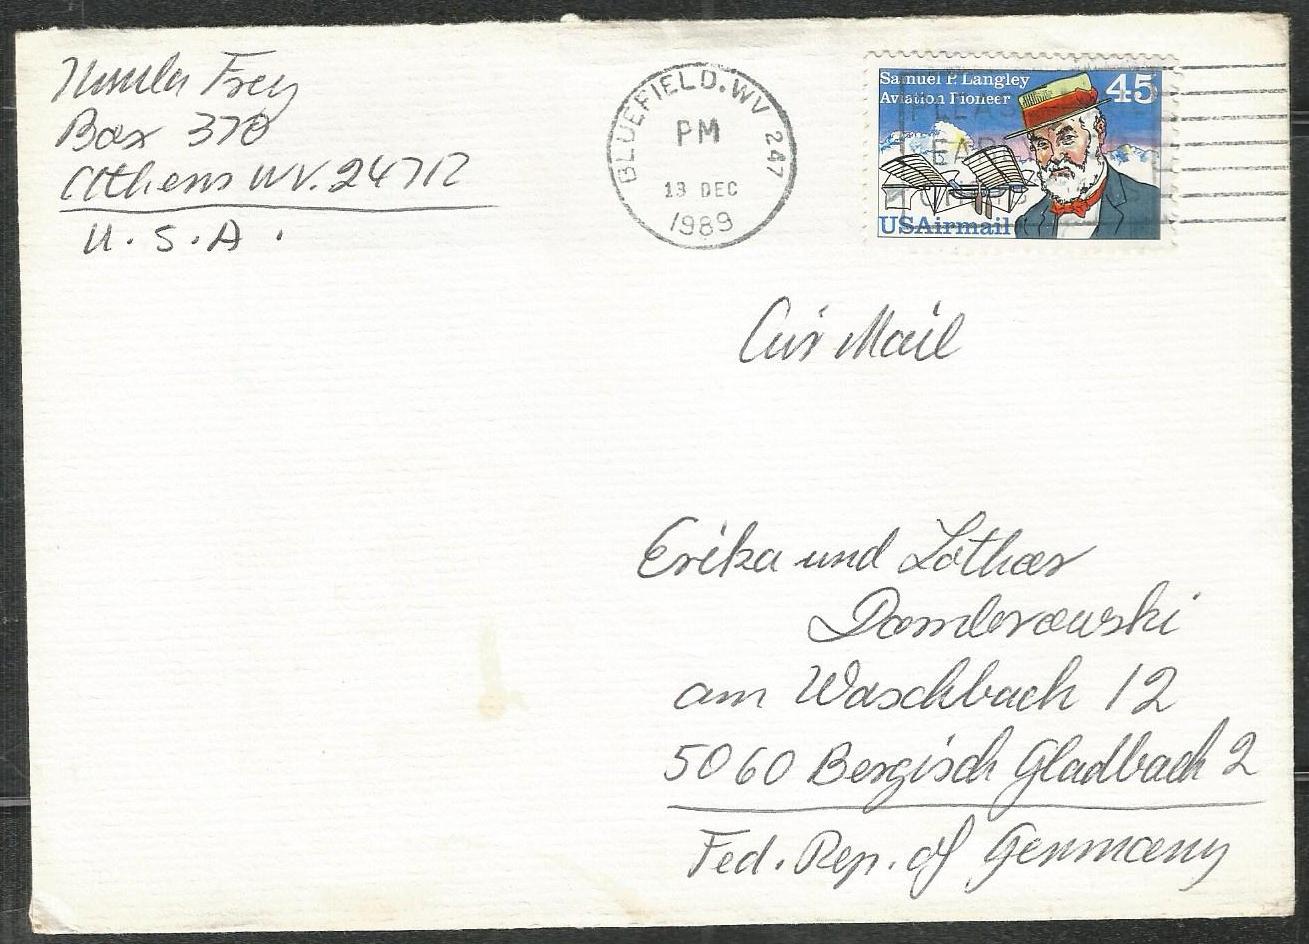 Ursula Frey
Box 370
Athens WV. 24712
U.S.A.
BLUEFIELD, WV 247
PM
13 DEC
1989
Samuel P. Langley
Aviation Pioneer
45
USAirmail
Air Mail
Erika und Lothar
Dombrowski
am Waschbach 12
5060 Bergisch Gladbach 2
Fed. Rep. of Germany